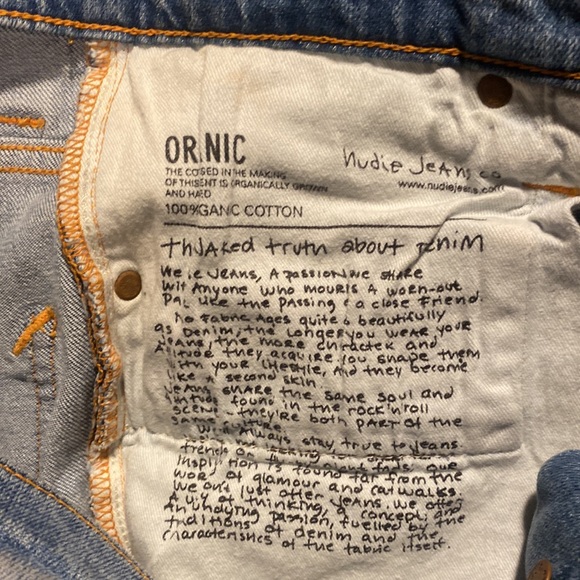 OR.NIC
THE CO SED IN THE MAKING
OF THIS ENT IS ORGANICALLY GROWN
AND HA ED
100% GANC COTTON
Nudie Jeans co
www.nudiejeans.com
th Naked truth about Denim
We e Jeans, A passion we share
wit Anyone who mourns A worn-out
pal like the passing a close friend.
No fabric Ages quite beautifully
as Denim, the longer you wear your
Jeans, the more character and
they acquire. You shape them
with your lifestyle, And they become
like a second skin.
Jeans share the same soul and
Attitude found in the rock'n'roll
scene - they're both part of the
same
We Always stay true to jeans.
trends
inspiration is found far from the
world of glamour and catwalks.
We don't just offer Jeans. We offer
A way of thinking, a concept and
An undying passion, fuelled by the
traditions of denim and the
characteristics of the fabric itself.